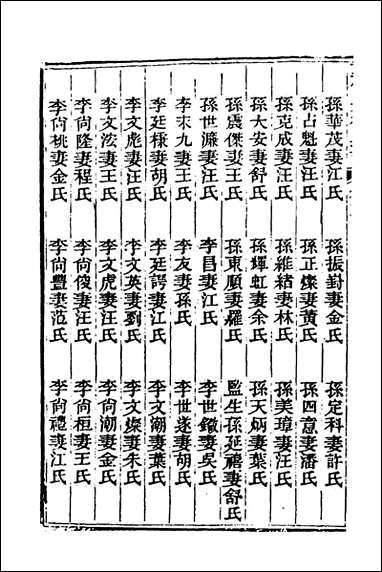 孫華茂妻江氏　孫振對妻金氏　孫定科妻許氏
孫占魁妻汪氏　孫正燦妻黃氏　孫四意妻潘氏
孫克成妻汪氏　孫維緒妻林氏　孫美璋妻汪氏
孫大安妻舒氏　孫煇虹妻余氏　孫天炳妻葉氏
孫震傑妻王氏　孫東順妻羅氏　監生孫延禧妻舒氏
孫世濂妻汪氏　李昌妻江氏　李世鐓妻吳氏
李末九妻王氏　李友妻孫氏　李世遂妻胡氏
李廷樣妻胡氏　李廷諤妻江氏　李文潮妻葉氏
李文彪妻汪氏　李文英妻劉氏　李文燦妻朱氏
李文浤妻王氏　李文虎妻汪氏　李尙潮妻金氏
李尙隆妻程氏　李尙俊妻汪氏　李尙桓妻王氏
李尙桃妻金氏　李尙豐妻范氏　李尙禮妻江氏